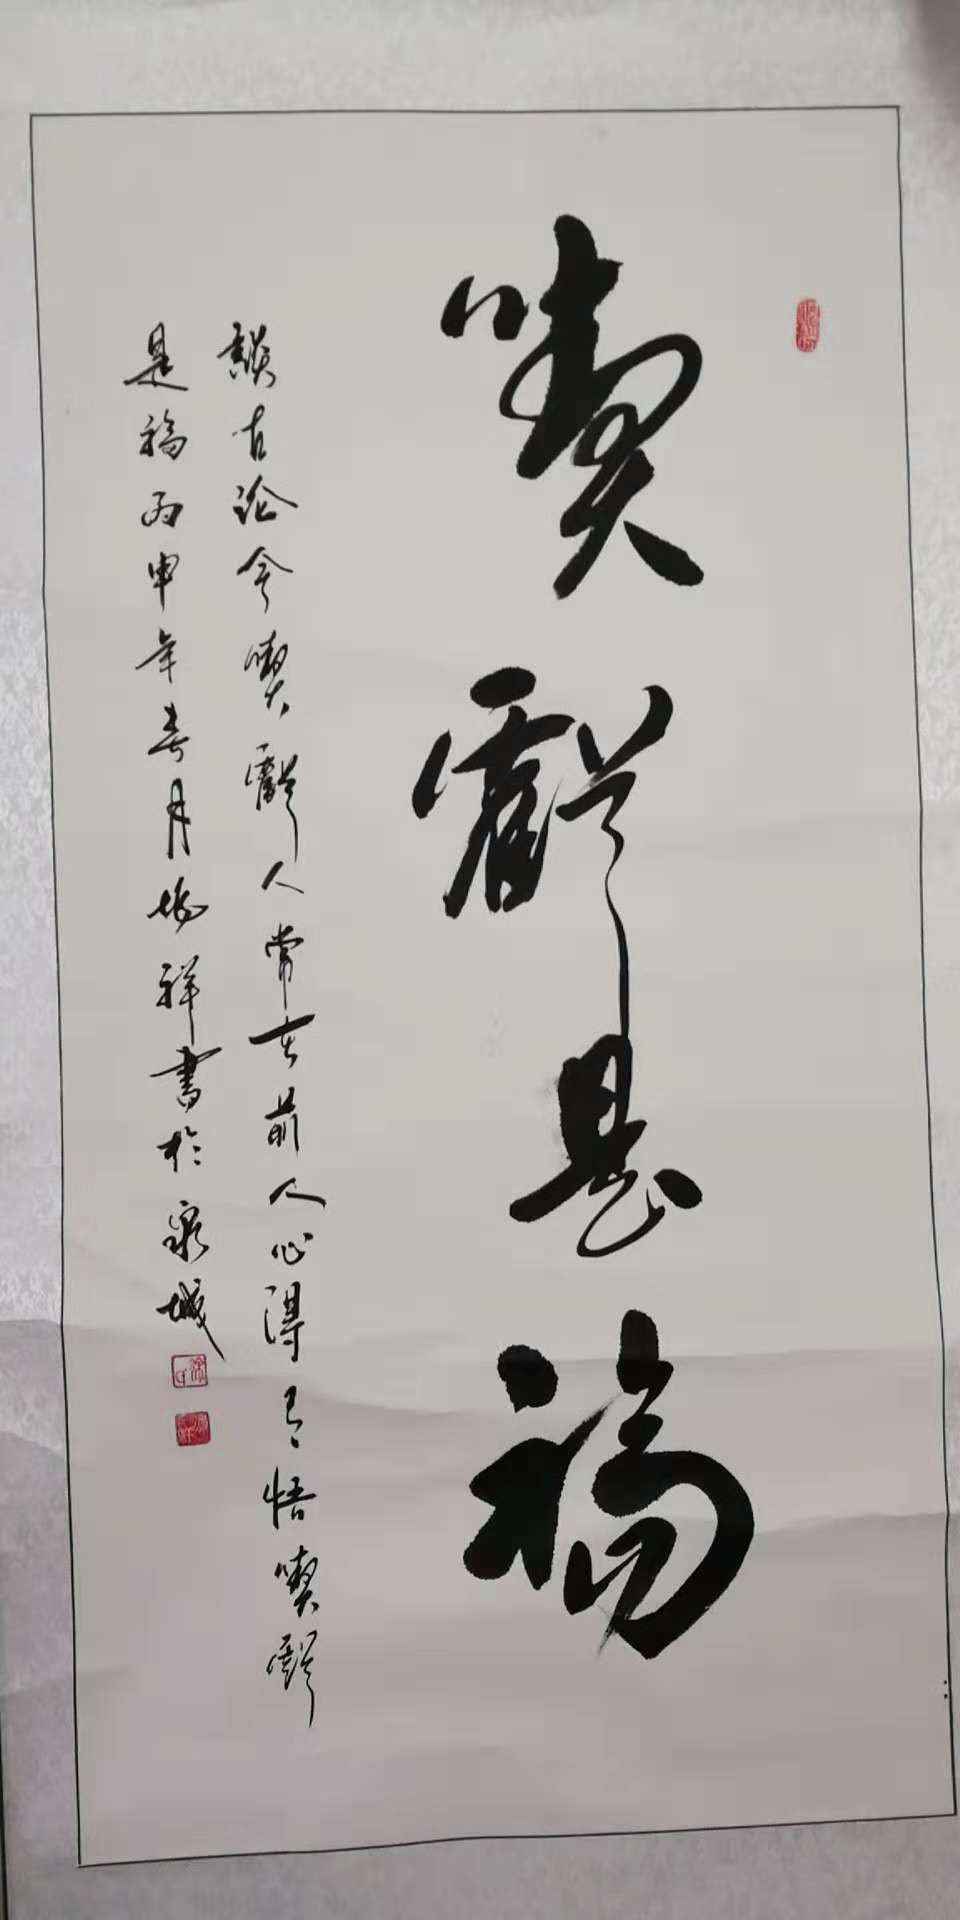 喫虧是福
談古論今喫虧人常在前人心得有悟喫虧
是福丙申年春月楊祥書於泉城